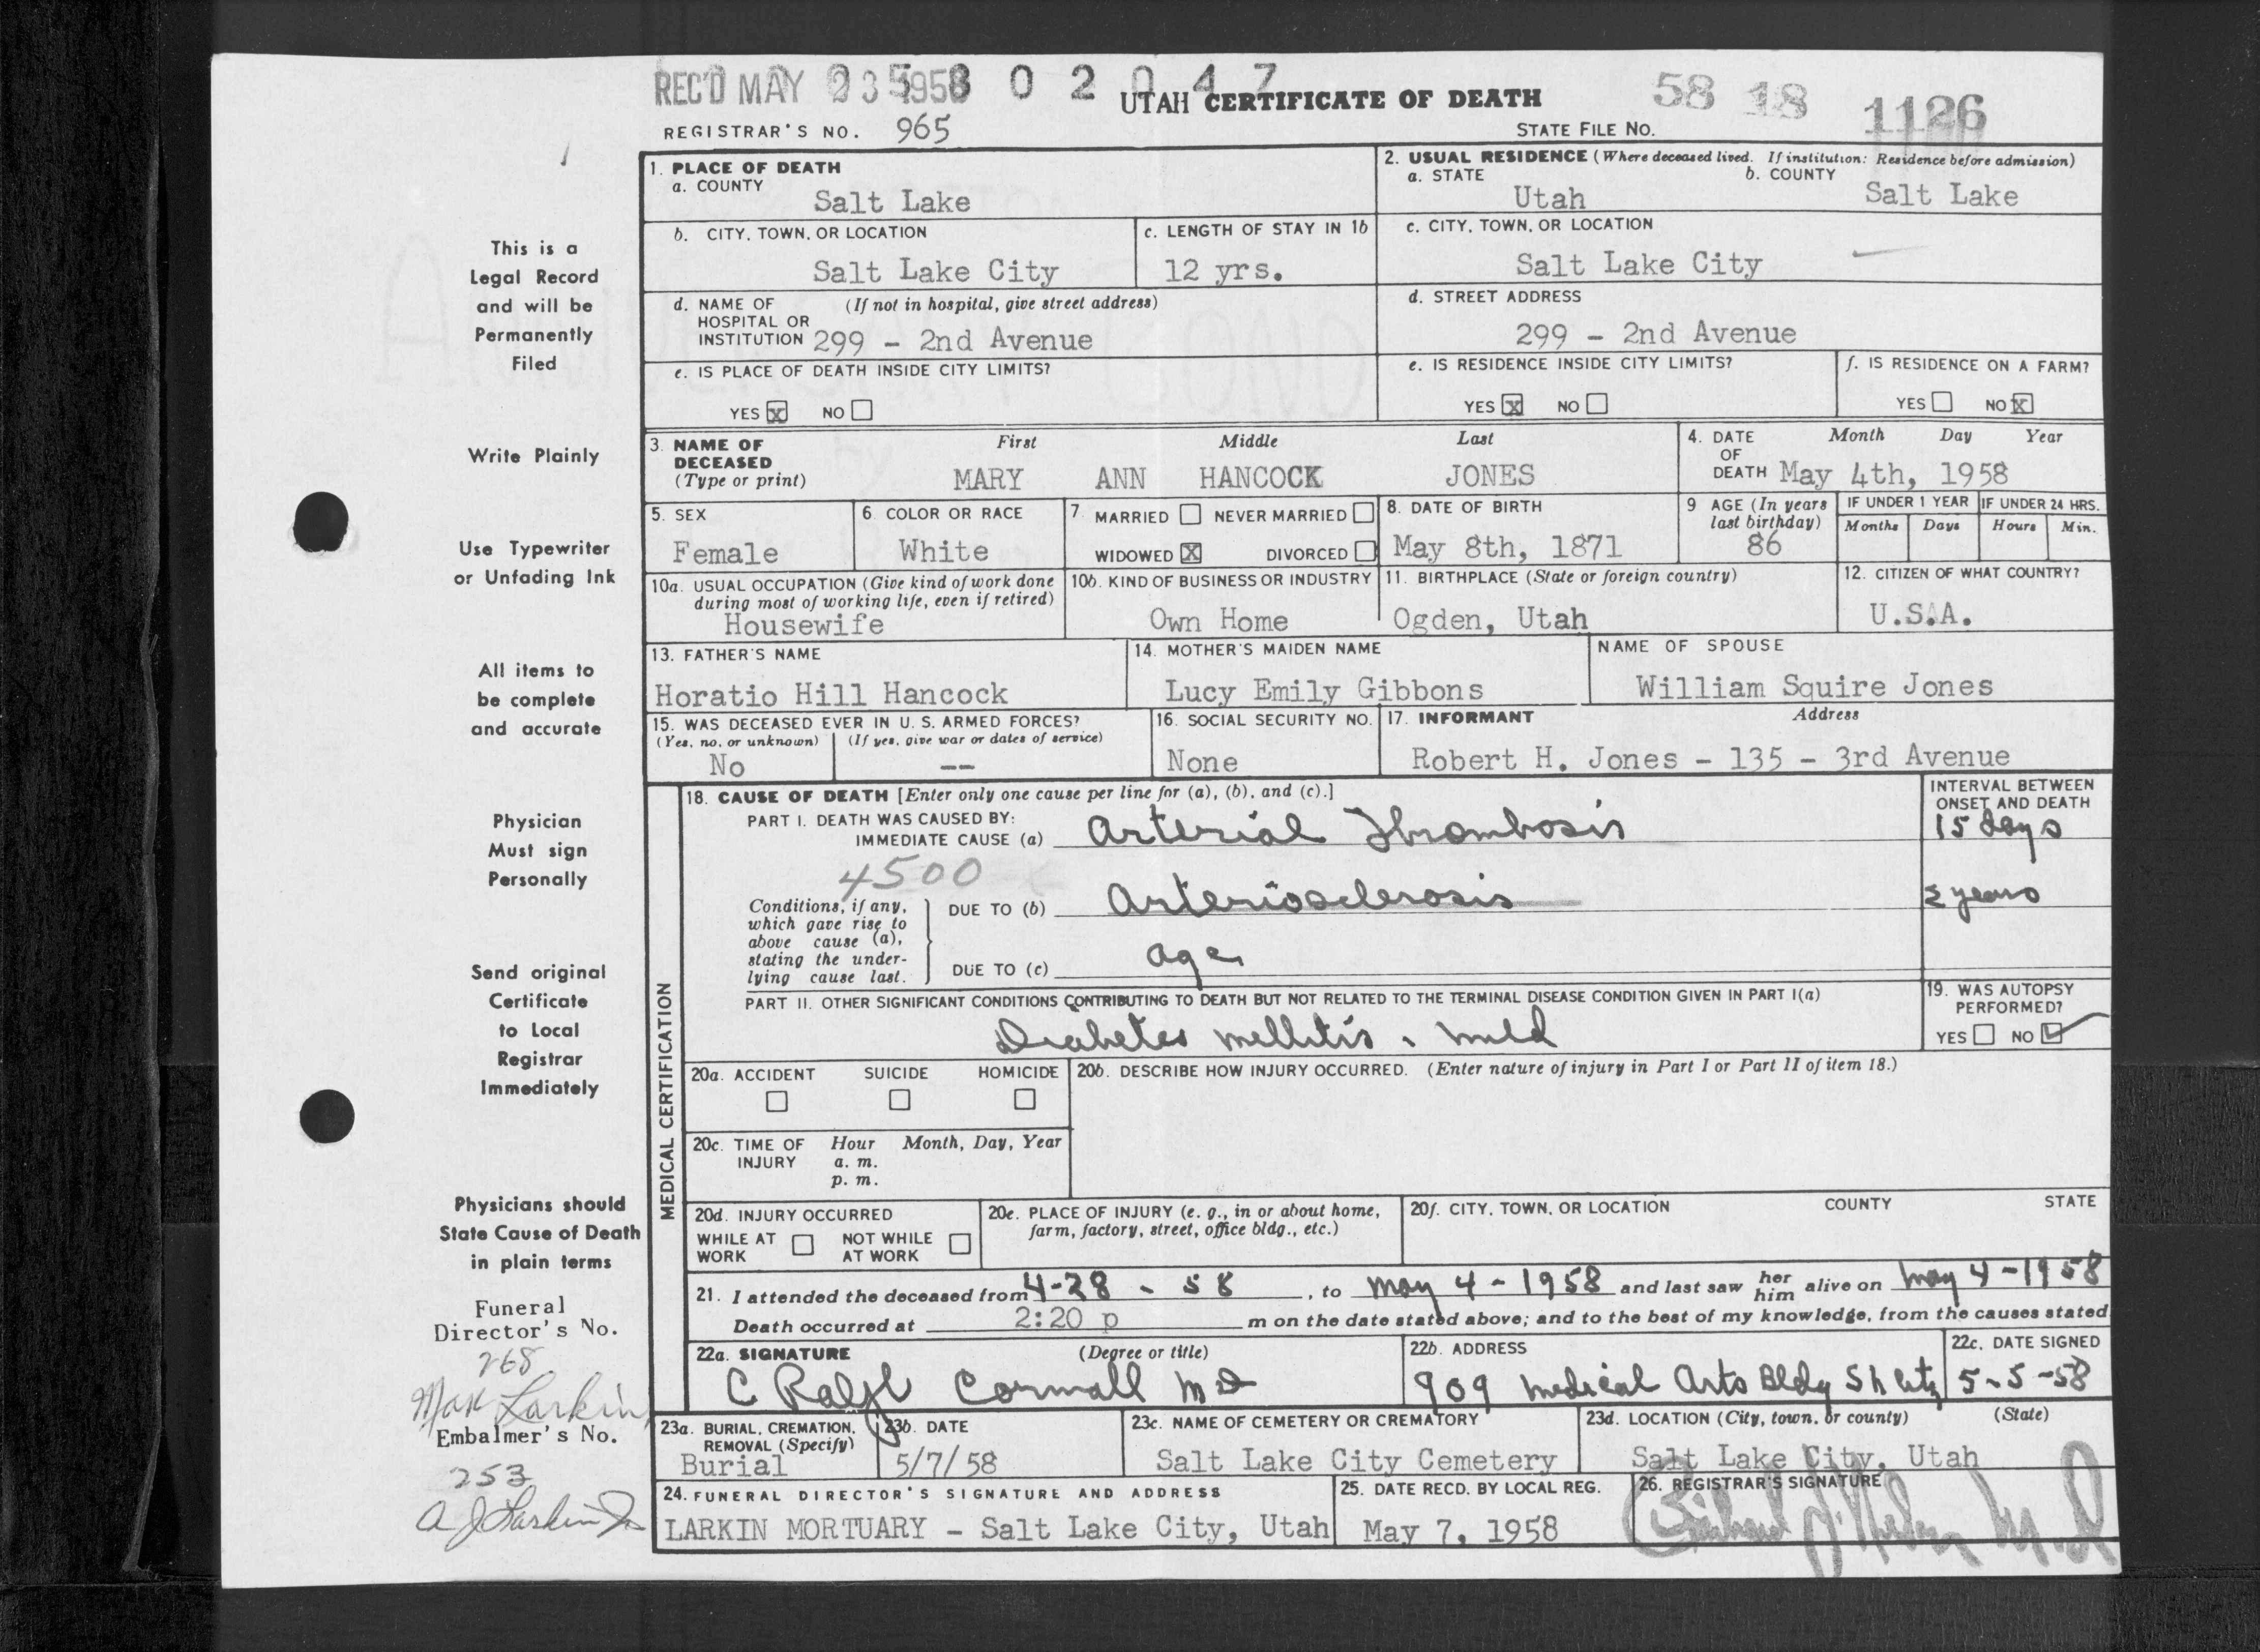 REC'D MAY 23 1958 5 8 0 2 0 4 7
UTAH CERTIFICATE OF DEATH
58 18 1126
REGISTRAR'S NO. 965
STATE FILE NO.
1. PLACE OF DEATH
a. COUNTY
Salt Lake
2. USUAL RESIDENCE (Where deceased lived. If institution: Residence before admission)
a. STATE
Utah
b. COUNTY
Salt Lake
b. CITY, TOWN, OR LOCATION
Salt Lake City
c. LENGTH OF STAY IN 1b
12 yrs.
c. CITY, TOWN, OR LOCATION
Salt Lake City
d. NAME OF (If not in hospital, give street address)
HOSPITAL OR
INSTITUTION 299 - 2nd Avenue
d. STREET ADDRESS
299 - 2nd Avenue
e. IS PLACE OF DEATH INSIDE CITY LIMITS?
YES X NO
e. IS RESIDENCE INSIDE CITY LIMITS?
YES X NO
f. IS RESIDENCE ON A FARM?
YES NO X
3. NAME OF DECEASED (Type or print)
First Middle Last
MARY ANN HANCOCK JONES
4. DATE OF DEATH
Month Day Year
May 4th, 1958
5. SEX
Female
6. COLOR OR RACE
White
7. MARRIED NEVER MARRIED
WIDOWED X DIVORCED
8. DATE OF BIRTH
May 8th, 1871
9. AGE (In years last birthday)
86
IF UNDER 1 YEAR
Months Days
IF UNDER 24 HRS.
Hours Min.
10a. USUAL OCCUPATION (Give kind of work done
during most of working life, even if retired)
Housewife
10b. KIND OF BUSINESS OR INDUSTRY
Own Home
11. BIRTHPLACE (State or foreign country)
Ogden, Utah
12. CITIZEN OF WHAT COUNTRY?
U.S.A.
13. FATHER'S NAME
Horatio Hill Hancock
14. MOTHER'S MAIDEN NAME
Lucy Emily Gibbons
NAME OF SPOUSE
William Squire Jones
15. WAS DECEASED EVER IN U. S. ARMED FORCES?
(Yes, no, or unknown) (If yes, give war or dates of service)
No --
16. SOCIAL SECURITY NO.
None
17. INFORMANT Address
Robert H. Jones - 135 - 3rd Avenue
MEDICAL CERTIFICATION
18. CAUSE OF DEATH [Enter only one cause per line for (a), (b), and (c).]
INTERVAL BETWEEN
ONSET AND DEATH
PART I. DEATH WAS CAUSED BY:
IMMEDIATE CAUSE (a) Arterial Thrombosis
15 days
4500
Conditions, if any,
which gave rise to
above cause (a),
stating the under-
lying cause last.
DUE TO (b) Arteriosclerosis
years
DUE TO (c) age
PART II. OTHER SIGNIFICANT CONDITIONS CONTRIBUTING TO DEATH BUT NOT RELATED TO THE TERMINAL DISEASE CONDITION GIVEN IN PART I(a)
Diabetes mellitis - mild
19. WAS AUTOPSY
PERFORMED?
YES NO
20a. ACCIDENT SUICIDE HOMICIDE
20b. DESCRIBE HOW INJURY OCCURRED. (Enter nature of injury in Part I or Part II of item 18.)
20c. TIME OF INJURY
Hour Month, Day, Year
a. m.
p. m.
20d. INJURY OCCURRED
WHILE AT WORK NOT WHILE AT WORK
20e. PLACE OF INJURY (e. g., in or about home,
farm, factory, street, office bldg., etc.)
20f. CITY, TOWN, OR LOCATION COUNTY STATE
21. I attended the deceased from 4-28-58, to May 4-1958 and last saw her him alive on May 4-1958
Death occurred at 2:20 p m on the date stated above; and to the best of my knowledge, from the causes stated
22a. SIGNATURE (Degree or title)
C Ralph Cornwall MD
22b. ADDRESS
909 Medical Arts Bldg
22c. DATE SIGNED
5-5-58
23a. BURIAL, CREMATION,
REMOVAL (Specify)
Burial
23b. DATE
5/7/58
23c. NAME OF CEMETERY OR CREMATORY
Salt Lake City Cemetery
23d. LOCATION (City, town, or county) (State)
Salt Lake City, Utah
24. FUNERAL DIRECTOR'S SIGNATURE AND ADDRESS
LARKIN MORTUARY - Salt Lake City, Utah
25. DATE RECD. BY LOCAL REG.
May 7, 1958
26. REGISTRAR'S SIGNATURE
This is a
Legal Record
and will be
Permanently
Filed
Write Plainly
Use Typewriter
or Unfading Ink
All items to
be complete
and accurate
Physician
Must sign
Personally
Send original
Certificate
to Local
Registrar
Immediately
Physicians should
State Cause of Death
in plain terms
Funeral
Director's No.
268
Max Larkin
Embalmer's No.
253
A J Larkin Jr